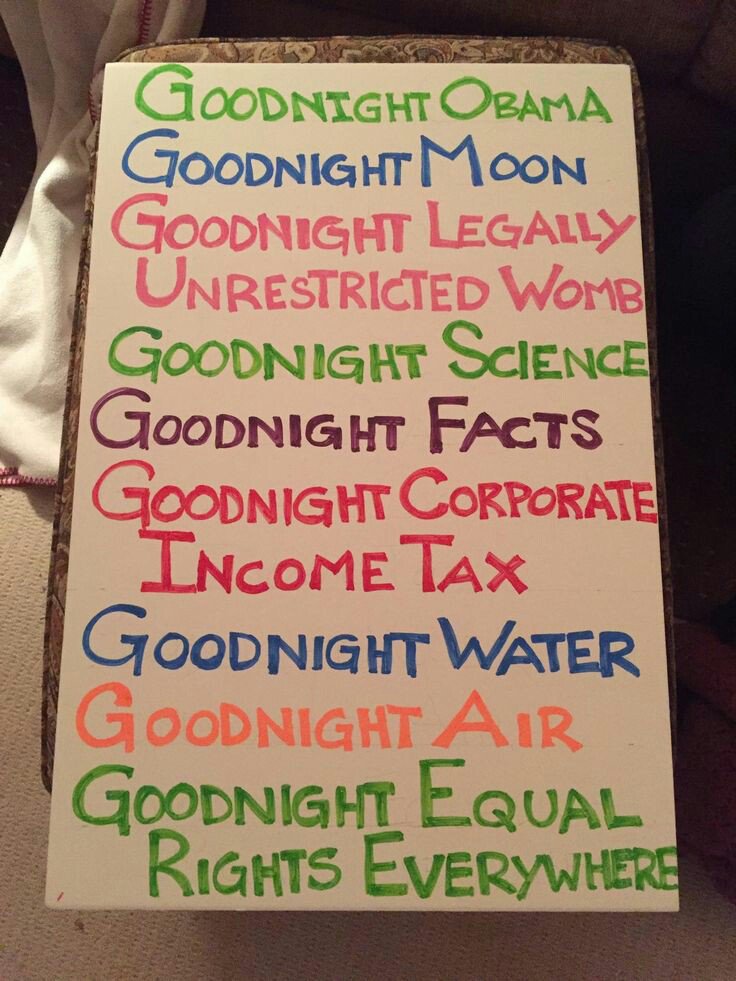 GOODNIGHT OBAMA
GOODNIGHT MOON
GOODNIGHT LEGALLY
UNRESTRICTED WOMB
GOODNIGHT SCIENCE
GOODNIGHT FACTS
GOODNIGHT CORPORATE
INCOME TAX
GOODNIGHT WATER
GOODNIGHT AIR
GOODNIGHT EQUAL
RIGHTS EVERYWHERE